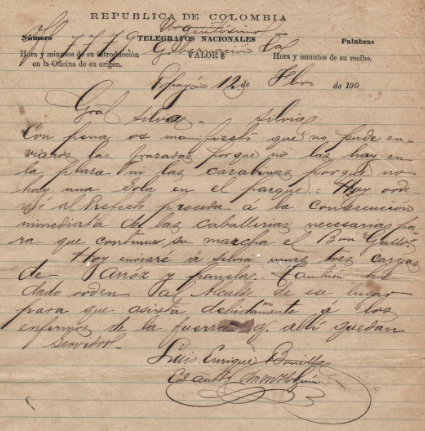 REPUBLICA DE COLOMBIA
Urgentísimo
Número TELEGRAFOS NACIONALES Palabras
Hora y minutos de su introducción VALOR $ Hora y minutos de su recibo.
en la Oficina de su origen.
Popayán 12 de de 190
Gral Silva. Silvia
Con pena os manifiesto que no pude en-
viaros las frazadas porque no las hay en
la plaza ni las carabinas porque no
hay una sola en el parque. Hoy orde
né al Prefecto proceda á la consecución
inmediata de las caballerías necesarias pa
ra que continúe su marcha el Bon
Hoy enviaré á Silvia unas tres cargas
de Arróz y panela. También he
dado orden al Alcalde de ese lugar
para que asista debidamente á los
enfermos de la fuerza q. allí quedan
Servidor.
Luis Enrique Bonilla